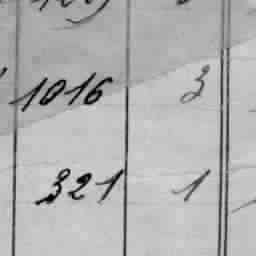 1016 3
321 1